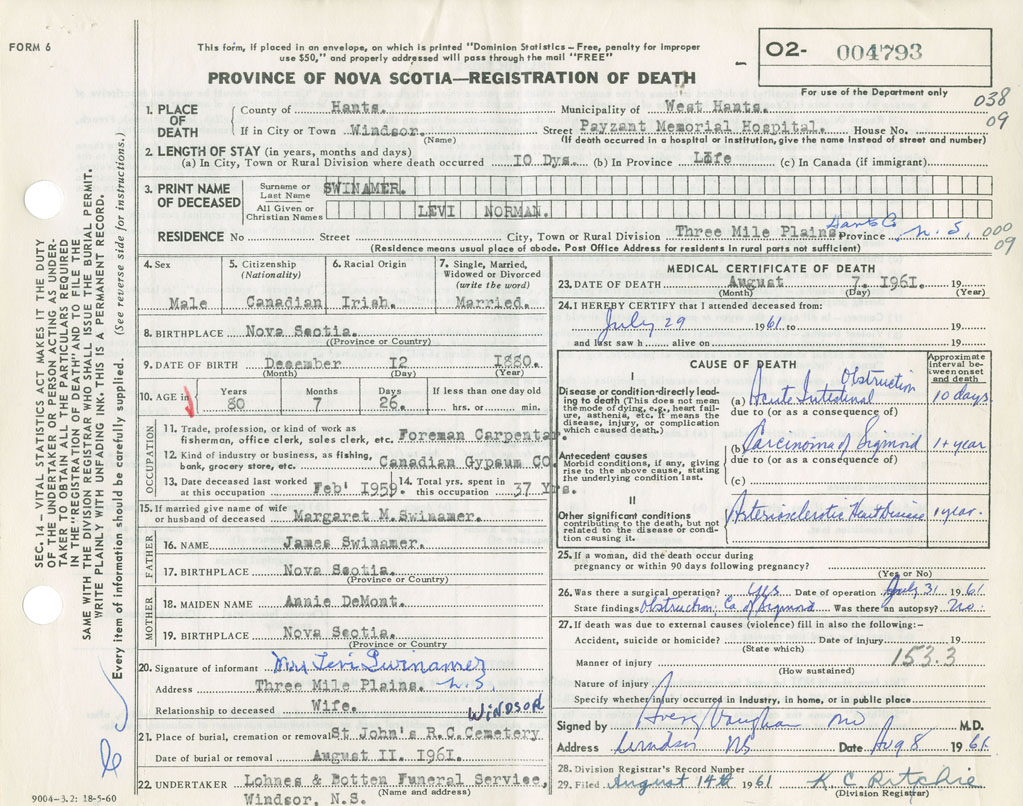 FORM 6
This form, if placed in an envelope, on which is printed "Dominion Statistics – Free, penalty for improper
use $50," and properly addressed will pass through the mail "FREE"
PROVINCE OF NOVA SCOTIA—REGISTRATION OF DEATH
O2- 004793
For use of the Department only
038
09
1. PLACE OF DEATH
County of Hants. Municipality of West Hants.
If in City or Town Windsor. Street Payzant Memorial Hospital. House No.
(Name) (If death occurred in a hospital or institution, give the name instead of street and number)
2. LENGTH OF STAY (in years, months and days)
(a) In City, Town or Rural Division where death occurred 10 Dys. (b) In Province Life (c) In Canada (if immigrant)
3. PRINT NAME OF DECEASED
Surname or Last Name SWINAMER.
All Given or Christian Names LEVI NORMAN.
RESIDENCE No Street City, Town or Rural Division Three Mile Plains Hants Co Province N.S.
000
09
(Residence means usual place of abode. Post Office Address for residents in rural parts not sufficient)
4. Sex
Male
5. Citizenship (Nationality)
Canadian
6. Racial Origin
Irish.
7. Single, Married, Widowed or Divorced (write the word)
Married.
8. BIRTHPLACE Nova Scotia.
(Province or Country)
9. DATE OF BIRTH December 12 1880.
(Month) (Day) (Year)
10. AGE in
Years Months Days If less than one day old
80 7 26. hrs. or min.
OCCUPATION
11. Trade, profession, or kind of work as fisherman, office clerk, sales clerk, etc. Foreman Carpenter.
12. Kind of industry or business, as fishing, bank, grocery store, etc. Canadian Gypsum CO.
13. Date deceased last worked at this occupation Feb' 1959. 14. Total yrs. spent in this occupation 37 Yrs.
15. If married give name of wife or husband of deceased Margaret M. Swinamer.
FATHER
16. NAME James Swinamer.
17. BIRTHPLACE Nova Scotia.
(Province or Country)
MOTHER
18. MAIDEN NAME Annie DeMont.
19. BIRTHPLACE Nova Scotia.
(Province or Country
20. Signature of informant Mrs Levi Swinamer
Address Three Mile Plains. N.S.
Relationship to deceased Wife.
WINDSOR
21. Place of burial, cremation or removal St John's R.C. Cemetery
Date of burial or removal August 11. 1961.
22. UNDERTAKER Lohnes & Botten Funeral Service,
(Name and address)
Windsor, N.S.
9004–3.2: 18-5-60
MEDICAL CERTIFICATE OF DEATH
23. DATE OF DEATH August 7. 1961. 19
(Month) (Day) (Year)
24. I HEREBY CERTIFY that I attended deceased from:
July 29 1961 to 19
and last saw h alive on 19
CAUSE OF DEATH
Approximate interval between onset and death
I
Disease or condition directly leading to death (This does not mean the mode of dying, e.g., heart failure, asthenia, etc. It means the disease, injury, or complication which caused death.)
(a) Acute Intestinal Obstruction 10 days
due to (or as a consequence of)
Antecedent causes
Morbid conditions, if any, giving rise to the above cause, stating the underlying condition last.
(b) Carcinoma of Sigmoid 1+ year
due to (or as a consequence of)
(c)
II
Other significant conditions
contributing to the death, but not related to the disease or condition causing it.
Arteriosclerotic Heart Disease 1 year.
25. If a woman, did the death occur during pregnancy or within 90 days following pregnancy?
(Yes or No)
26. Was there a surgical operation? Yes Date of operation July 31 1961
State findings Obstruction; Ca of Sigmoid Was there an autopsy? no.
27. If death was due to external causes (violence) fill in also the following:–
Accident, suicide or homicide? Date of injury 19
(State which)
153.3
Manner of injury
(How sustained)
Nature of injury
Specify whether injury occurred in industry, in home, or in public place
Signed by Avery Vaughan MD M.D.
Address Windsor NS Date Aug 8 1961
28. Division Registrar's Record Number
29. Filed August 14th 1961 K C Ritchie
(Division Registrar)
SEC. 14 – VITAL STATISTICS ACT MAKES IT THE DUTY
OF THE UNDERTAKER OR PERSON ACTING AS UNDER-
TAKER TO OBTAIN ALL THE PARTICULARS REQUIRED
IN THE "REGISTRATION OF DEATH" AND TO FILE THE
SAME WITH THE DIVISION REGISTRAR WHO SHALL ISSUE THE BURIAL PERMIT.
WRITE PLAINLY WITH UNFADING INK. THIS IS A PERMANENT RECORD.
Every item of information should be carefully supplied. (See reverse side for instructions.)